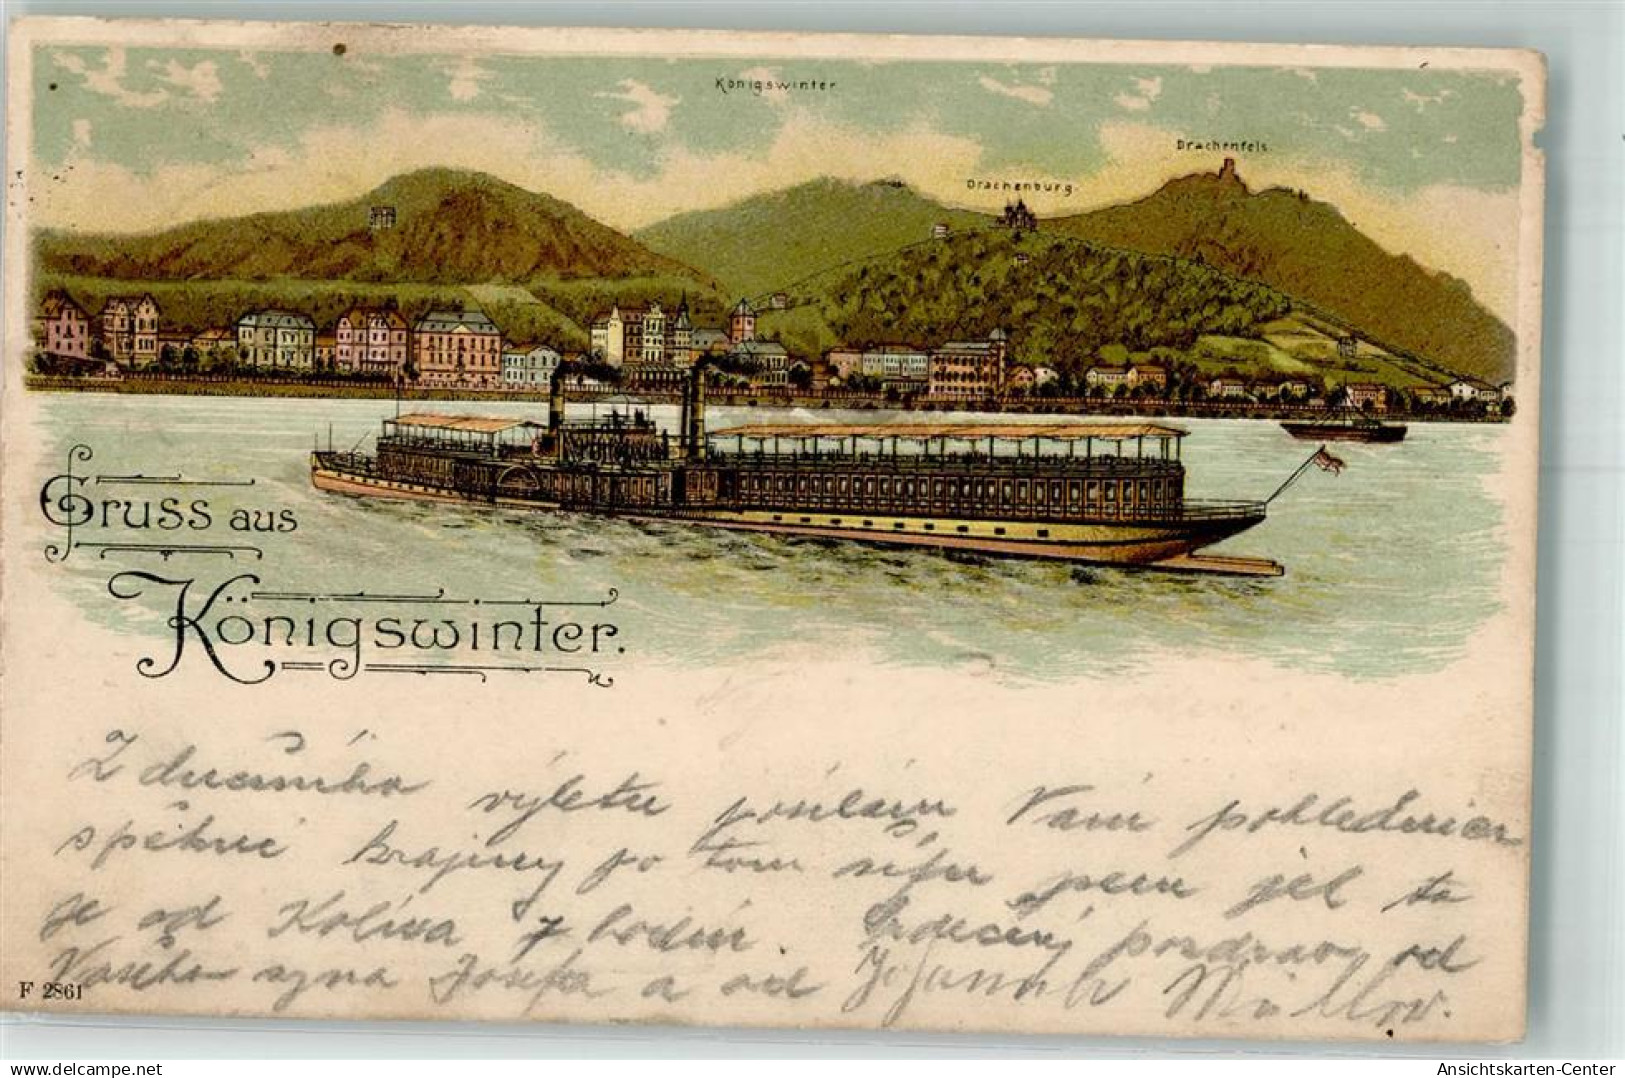 Königswinter
Drachenfels.
Drachenburg.
Gruss aus
Königswinter.
Z dnešního výletu posílám Vám pohlednici
spěkné krajiny po tom rýnu jsem jel ta
je od Kolína 7 hodin. Srdečný pozdrav od
Vašeho syna Josefa a od Johannah Müllov.
F 2861
Ansichtskarten-Center